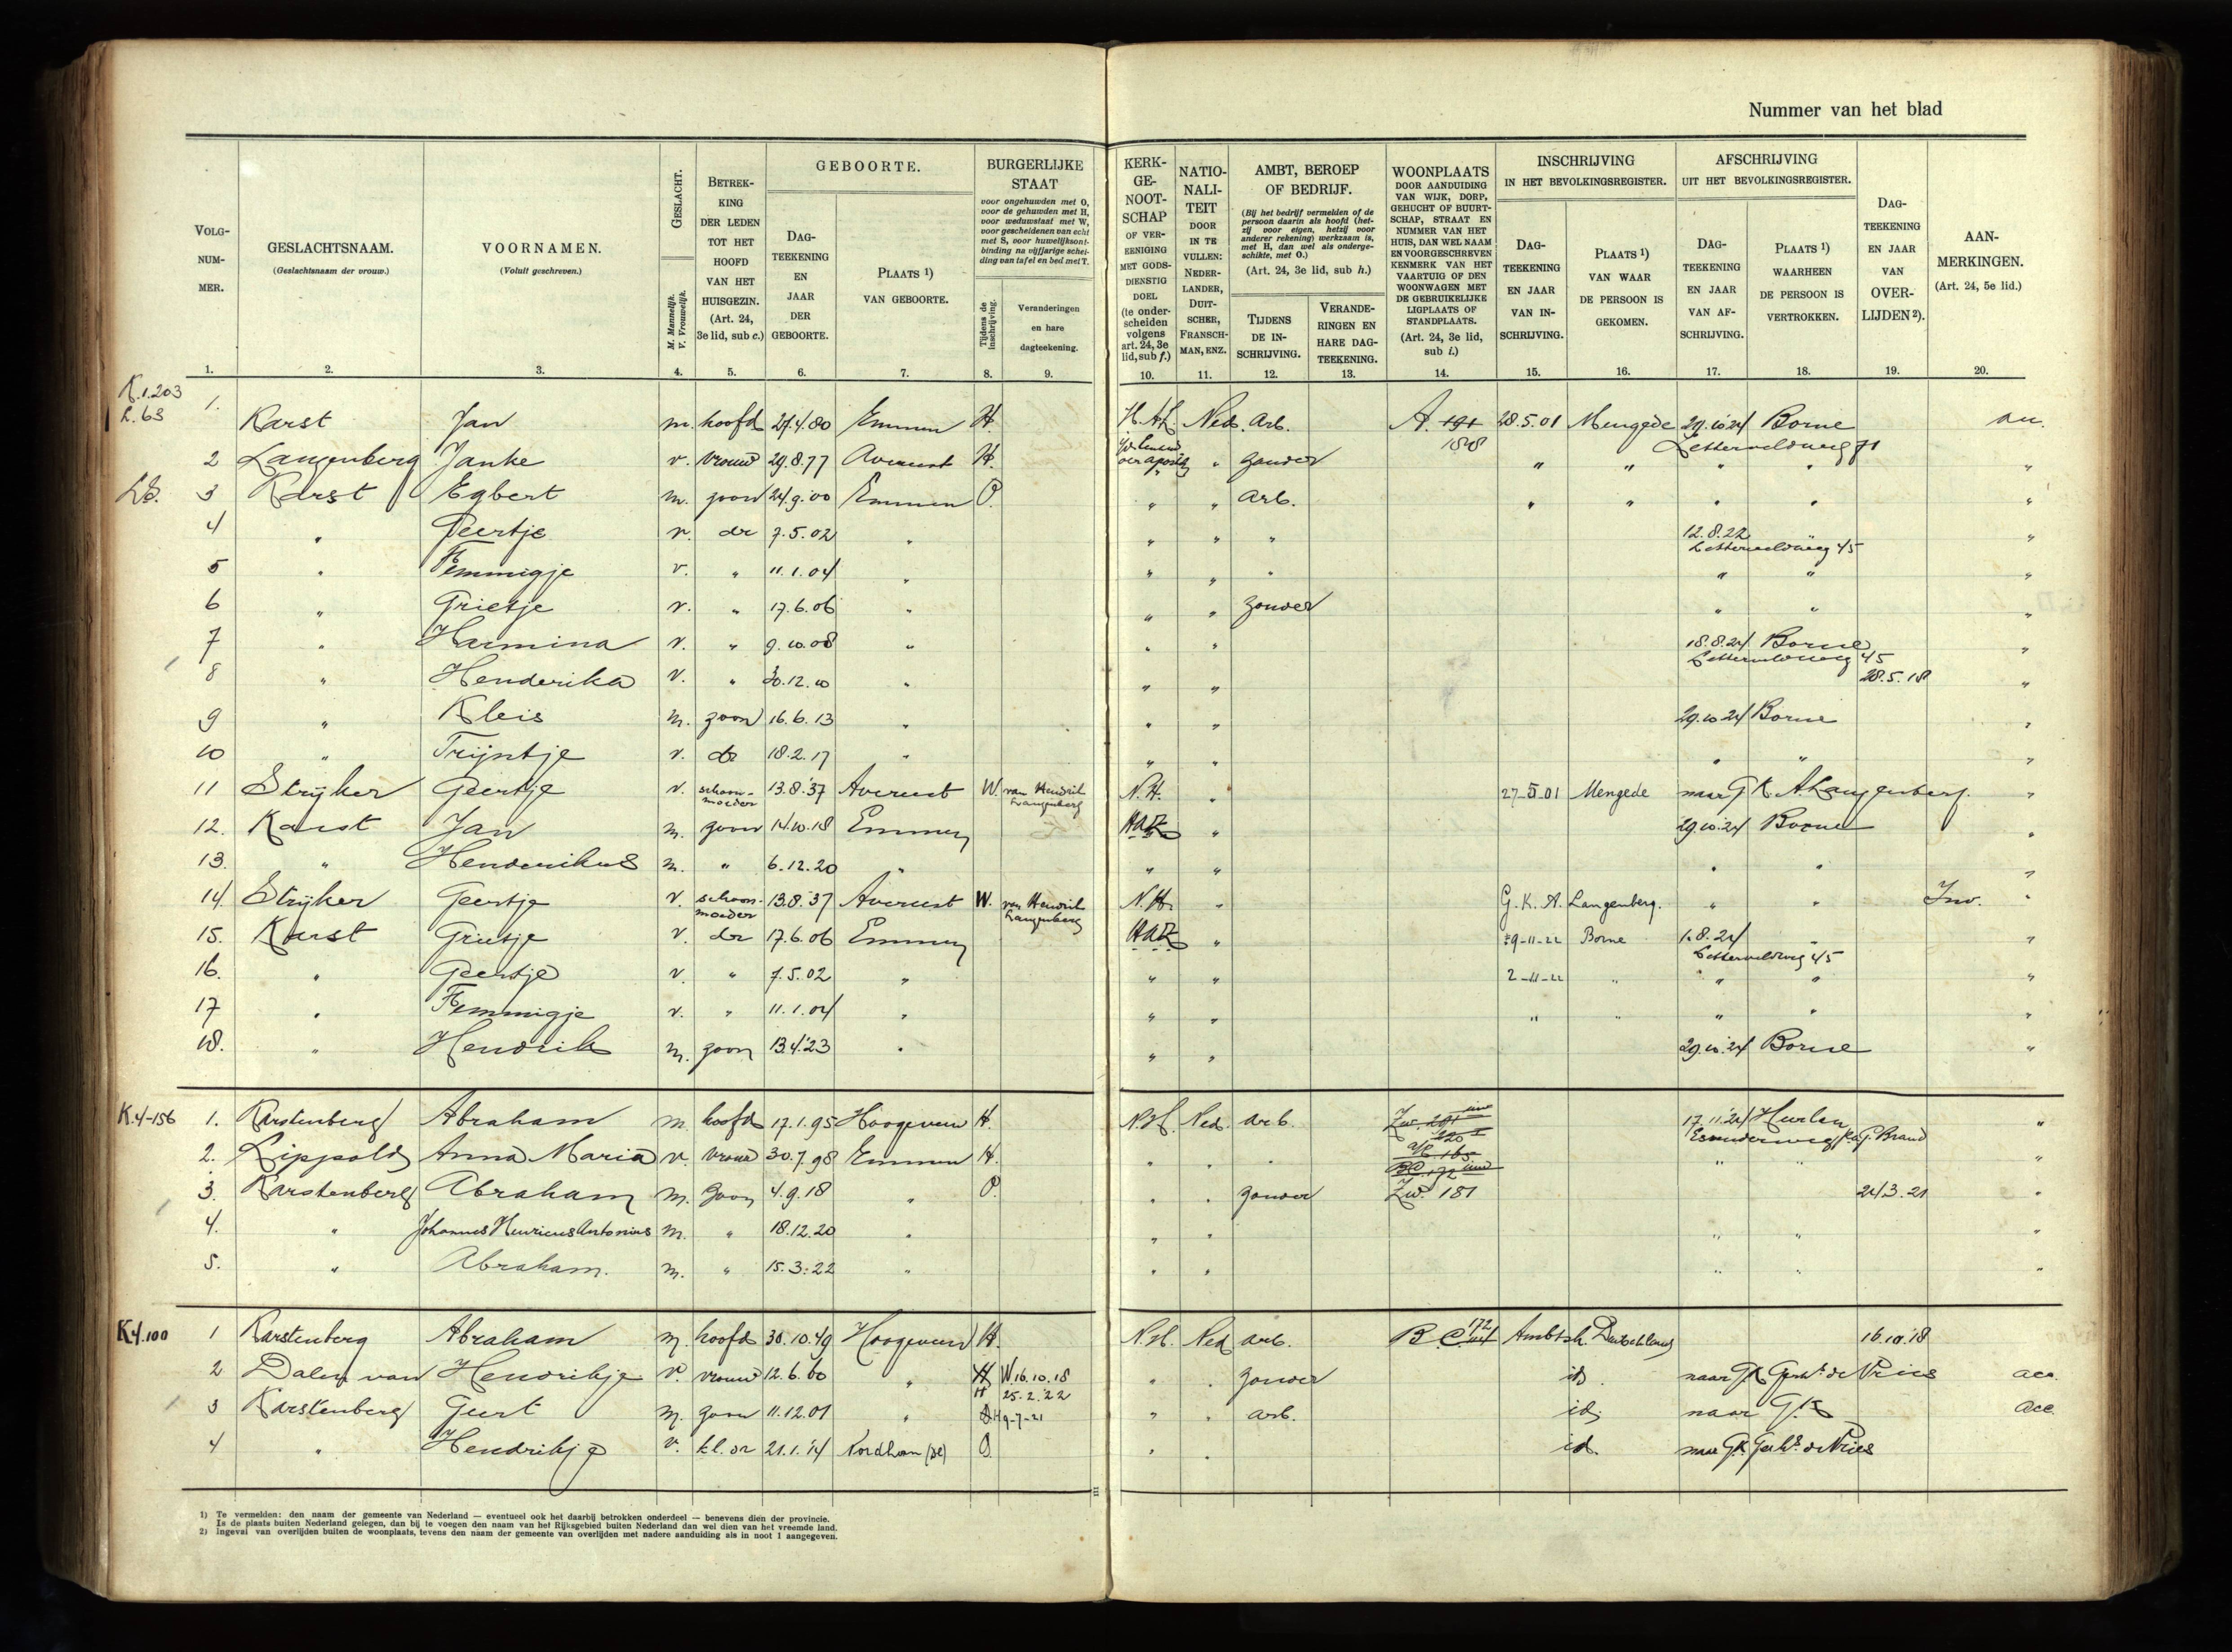 Nummer van het blad
VOLG-NUM-MER. GESLACHTSNAAM. (Geslachtsnaam der vrouw.) VOORNAMEN. (Voluit geschreven.) GESLACHT. M. Mannelijk. V. Vrouwelijk. BETREK-KING DER LEDEN TOT HET HOOFD VAN HET HUISGEZIN. (Art. 24, 3e lid, sub c.) GEBOORTE. DAG-TEEKENING EN JAAR DER GEBOORTE. PLAATS ¹) VAN GEBOORTE.
BURGERLIJKE STAAT voor ongehuwden met O, voor de gehuwden met H, voor weduwstaat met W, voor gescheidenen van echt met S, voor huwelijksont-binding na vijfjarige schei-ding van tafel en bed met T. Tijdens de inschrijving. Veranderingen en hare dagteekening.
KERK-GE-NOOT-SCHAP OF VER-EENIGING MET GODS-DIENSTIG DOEL (te onder-scheiden volgens art. 24, 3e lid, sub f.) NATIO-NALI-TEIT DOOR IN TE VULLEN: NEDER-LANDER, DUIT-SCHER, FRANSCH-MAN, ENZ.
AMBT, BEROEP OF BEDRIJF. (Bij het bedrijf vermelden of de persoon daarin als hoofd (het-zij voor eigen, hetzij voor anderer rekening) werkzaam is, met H, dan wel als onderge-schikte, met O.) (Art. 24, 3e lid, sub h.) TIJDENS DE IN-SCHRIJVING. VERANDE-RINGEN EN HARE DAG-TEEKENING.
WOONPLAATS DOOR AANDUIDING VAN WIJK, DORP, GEHUCHT OF BUURT-SCHAP, STRAAT EN NUMMER VAN HET HUIS, DAN WEL NAAM EN VOORGESCHREVEN KENMERK VAN HET VAARTUIG OF DEN WOONWAGEN MET DE GEBRUIKELIJKE LIGPLAATS OF STANDPLAATS. (Art. 24, 3e lid, sub i.)
INSCHRIJVING IN HET BEVOLKINGSREGISTER. DAG-TEEKENING EN JAAR VAN IN-SCHRIJVING. PLAATS ¹) VAN WAAR DE PERSOON IS GEKOMEN.
AFSCHRIJVING UIT HET BEVOLKINGSREGISTER. DAG-TEEKENING EN JAAR VAN AF-SCHRIJVING. PLAATS ¹) WAARHEEN DE PERSOON IS VERTROKKEN. DAG-TEEKENING EN JAAR VAN OVER-LIJDEN ²). AAN-MERKINGEN. (Art. 24, 5e lid.)
1. 2. 3. 4. 5. 6. 7. 8. 9. 10. 11. 12. 13. 14. 15. 16. 17. 18. 19. 20.
K.1.203
1. Karst Jan m. hoofd 27.4.80 Emmen H. Ned. Arb. A. 191 188 28.5.01 Mengede 29.10.24 Borne
2 Langenberg Janke v. vrouw 29.8.77 Avereest H. " zonder " " Lettervelweg 71 "
3 Karst Egbert m. zoon 24.9.00 Emmen O. " " arb. " " " " "
4 " Geertje v. dr 7.5.02 " " " " 12.8.22 " Lettervelweg 45 "
5 " Femmigje v. " 11.1.04 " " " " " " "
6 " Grietje v. " 17.6.06 " " " zonder " " "
7 " Harmina v. " 9.10.08 " " " 18.8.24 Borne Lettervelweg 45 "
8 " Henderika v. " 30.12.10 " " " 28.5.18 "
9 " Kleis m. zoon 16.6.13 " " " 29.10.24 Borne "
10 " Trijntje v. dr 18.2.17 " " " " " "
11 Strijker Geertje v. schoon-moeder 13.8.'37 Avereest W. van Hendrik Langenberg N.H. " 27-5-01 Mengede naar G.K. A. Langenberg. "
12. Karst Jan m. zoon 14.10.18 Emmen HAK " 29.10.24 Borne "
13. " Hendrikus m. " 6.12.20 " " " " " "
14 Strijker Geertje v. schoon-moeder 13.8.'37 Avereest W. van Hendrik Langenberg N.H. " G.K. A. Langenberg. " " Inv. "
15. Karst Grietje v. dr 17.6.06 Emmen HAK " 9-11-22 Borne 1.8.24 " Lettervelweg 45 "
16. " Geertje v. " 7.5.02 " " " 2-11-22 " " " "
17 " Femmigje v. " 11.1.04 " " " " " " " "
18. " Hendrik m. zoon 13.4.'23 " " " 29.10.24 Borne "
K.4-156 1. Karstenberg Abraham m. hoofd 17.1.95 Hoogeveen H. N.H. Ned. arb. 17.11.'24 "
2. Lippolds Anna Maria v. vrouw 30.7.98 Emmen H. " " " " " "
3. Karstenberg Abraham m. zoon 4.9.18 " O. " " zonder Zw. 181 24.3.21 "
4. " Johannes Henricus Antonius m. " 18.12.20 " " " " " "
5. " Abraham. m. " 15.3.22 " " " " " "
K4.100 1 Karstenberg Abraham m. hoofd 30.10.49 Hoogeveen H. N.H. Ned arb. B.C. 172 Ambtsh. Duitschland 16.10.'18
2 Dalen van Hendrikje v. vrouw 12.6.60 " H W.16.10.18 H 25.2.22 " " zonder id. naar GK Gerh. de Vries acc.
3 Karstenberg Geert m. zoon 11.12.01 " O H 9-7-21 " " arb. id. naar G.K acc.
4 " Hendrikje v. kl. dr 21.1.14 Nordhorn (Dl) O. " " id. naar GK Gerh. de Vries
1) Te vermelden: den naam der gemeente van Nederland — eventueel ook het daarbij betrokken onderdeel — benevens dien der provincie.
Is de plaats buiten Nederland gelegen, dan bij te voegen den naam van het Rijksgebied buiten Nederland dan wel dien van het vreemde land.
2) Ingeval van overlijden buiten de woonplaats, tevens den naam der gemeente van overlijden met nadere aanduiding als in noot 1 aangegeven.